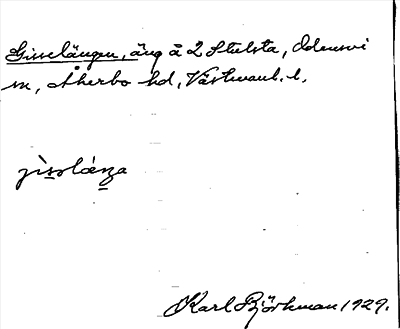 Gisselängen, äng å 2 Stulsta, Odensvi
sn, Åkerbo hd, Västmanl. l.
jìsslæŋa
Karl Björkman 1929.